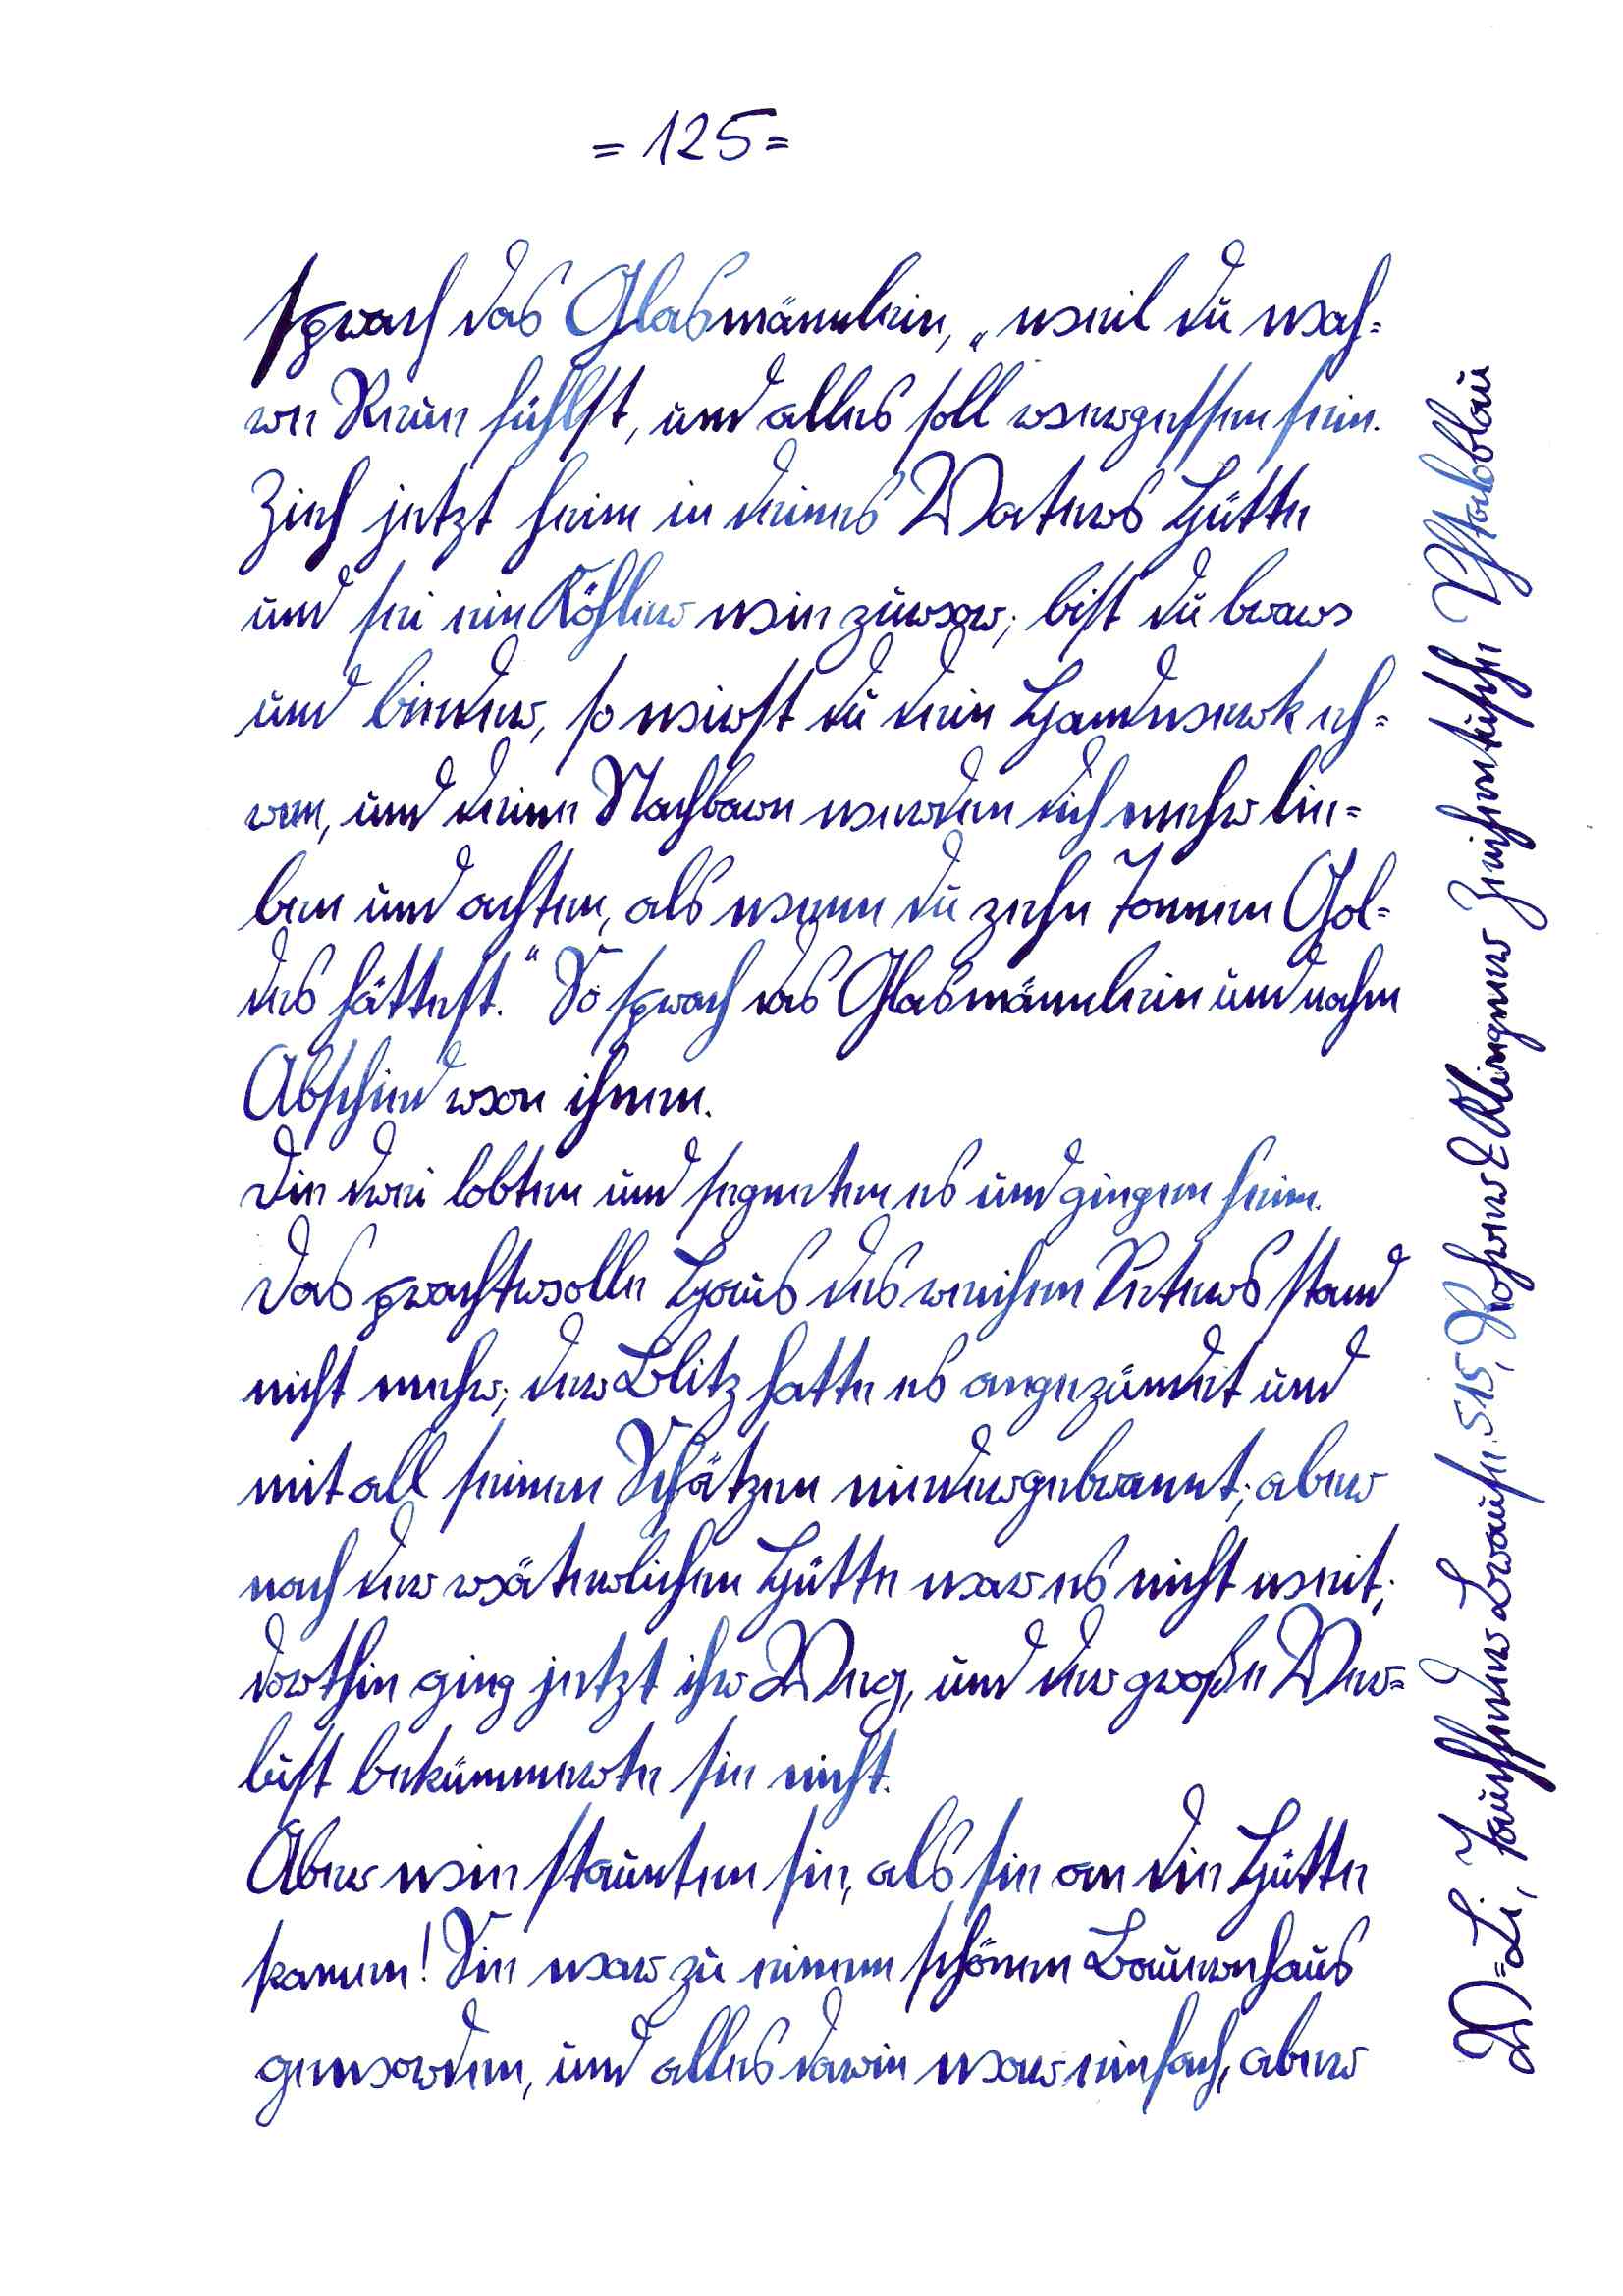 = 125 =
sprach das Glasmännlein, „weil du wah=
re Reue fühlst, und alles soll vergessen sein.
Zieh jetzt heim in deines Vaters Hütte
und sei ein Köhler wie zuvor; bist du brav
und bieder, so wirst du dein Handwerk eh=
ren, und deine Nachbarn werden dich mehr lie=
ben und achten, als wenn du zehn Tonnen Gol=
des hättest.“ So sprach das Glasmännlein und nahm
Abschied von ihnen.
Die drei lobten und segneten es und gingen heim.
Das prachtvolle Haus des reichen Peters stand
nicht mehr; der Blitz hatte es angezündet und
mit all seinen Schätzen niedergebrannt; aber
nach der väterlichen Hütte war es nicht weit;
dorthin ging jetzt ihr Weg, und der große Ver=
lust bekümmerte sie nicht.
Aber wie staunten sie, als sie an die Hütte
kamen! Sie war zu einem schönen Bauernhaus
geworden, und alles darin war einfach, aber
Rohrer & Klingner Zeichentusche